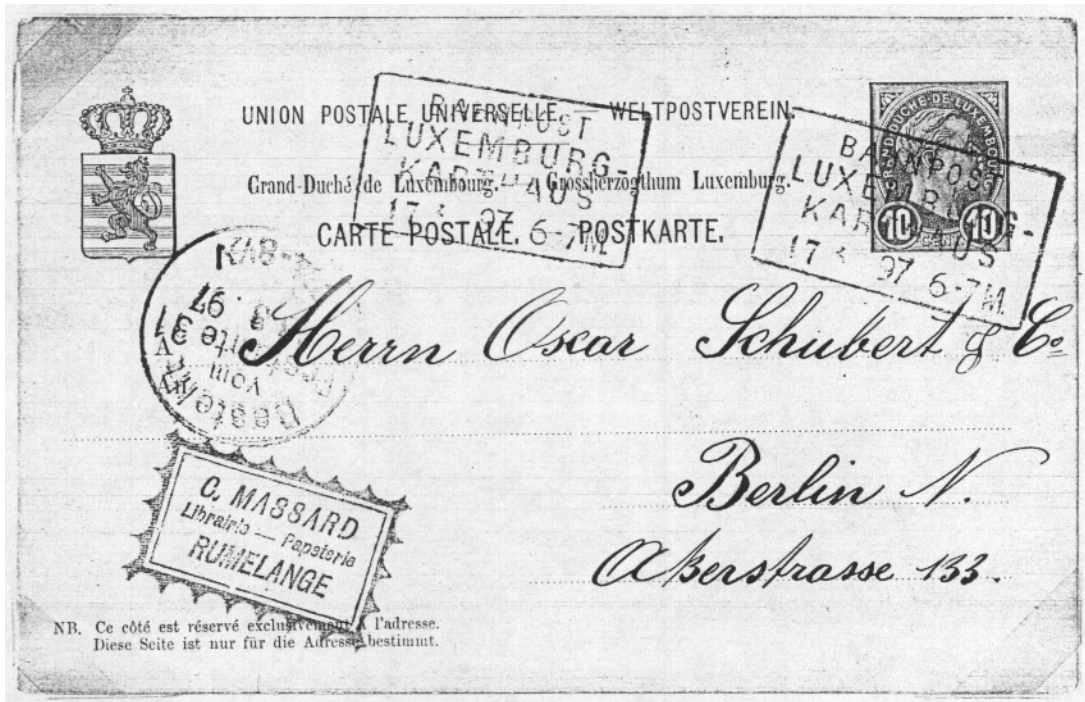 UNION POSTALE UNIVERSELLE. — WELTPOSTVEREIN.
Grand-Duché de Luxembourg. — Grossherzogthum Luxemburg.
CARTE POSTALE. — POSTKARTE.
BAHNPOST
LUXEMBURG-
KARTHAUS
17 3 97 6-7M.
GRAND DUCHÉ-DE-LUXEMBOURG
10 10
BAHNPOST
LUXEMBURG-
KARTHAUS
17 3 97 6-7M.
Bestellt
vom
Postamte 31
97
Herrn Oscar Schubert & Co
Berlin N.
Akerstrasse 133.
C. MASSARD
Librairie — Papeterie
RUMELANGE
NB. Ce côté est réservé exclusivement à l'adresse.
Diese Seite ist nur für die Adresse bestimmt.